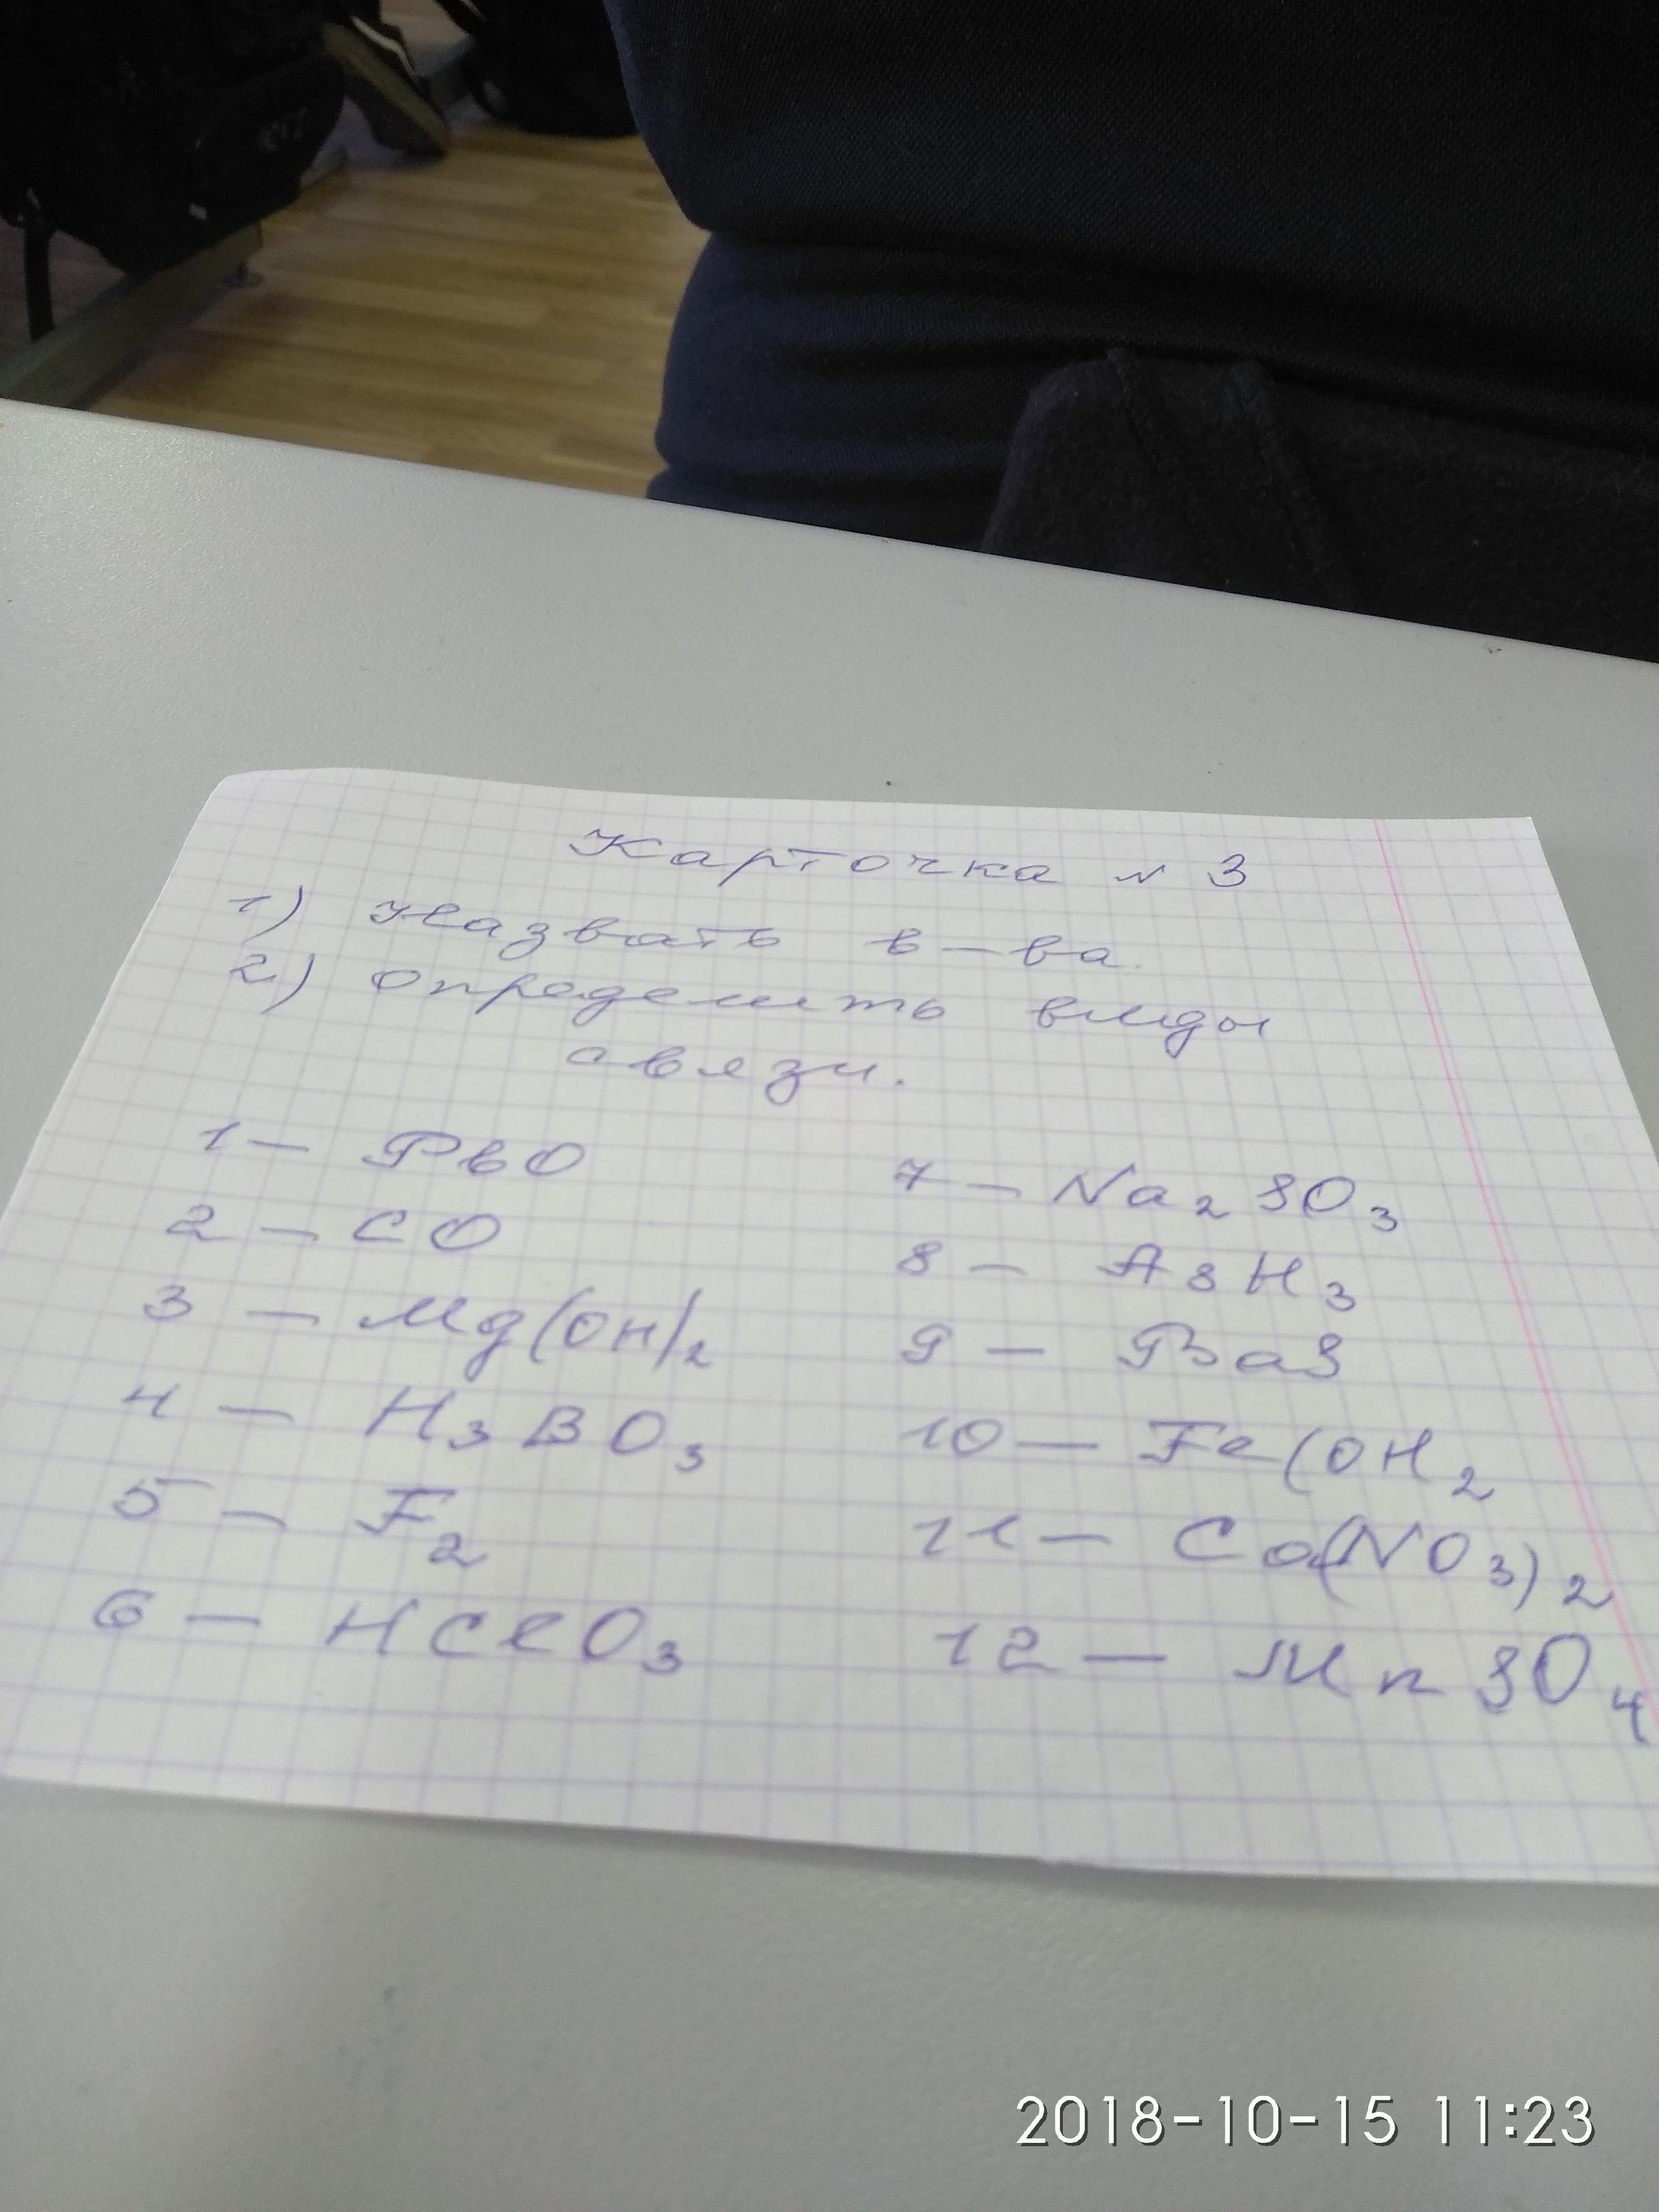 Карточка № 3
1) Назвать в-ва.
2) Определить виды
связи.
1 — PbO
2 — CO
3 — Mg(OH)₂
4 — H₃BO₃
5 — F₂
6 — HClO₃
7 — Na₂SO₃
8 — AsH₃
9 — BaS
10 — Fe(OH₂
11 — Ca(NO₃)₂
12 — MnSO₄
2018-10-15 11:23